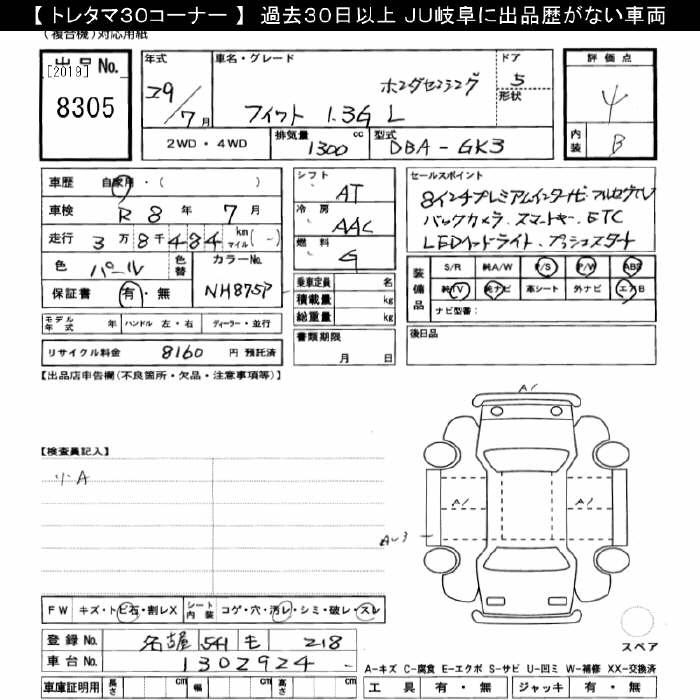 【 トレタマ30コーナー 】 過去30日以上 JU岐阜に出品歴がない車両
(複合機)対応用紙
出品No.
[2019]
8305
年式
29/7月
車名・グレード
ホンダセンシング
フィット 1.3G L
ドア
形状
5
2WD・4WD
排気量
1300
cc
型式
DBA-GK3
評価点
4
内装
B
車歴 自家用・( )
車検 R 8 年 7 月
走行 3万8千484 km マイル(-)
色 パール
色替
カラーNo.
NH875P
保証書 有・無
シフト
AT
冷房
AAC
燃料
G
乗車定員 名
積載量 kg
総重量 kg
書類期限
月 日
セールスポイント
8インチプレミアムインターナビ・フルセグTV
バックカメラ・スマートキー・ETC
LEDヘッドライト・プッシュスタート
装備品
S/R 純A/W P/S P/W ABS
純TV 純ナビ 革シート 外ナビ エアB
ナビ型番:
後日品
モデル年式 年
ハンドル 左・右
ディーラー・並行
リサイクル料金 8160 円 預託済
【出品店申告欄(不良箇所・欠品・注意事項等)】
【検査員記入】
小A
A1
A1
A1
AU3
FW キズ・トビ石・割レX
シート内装 コゲ・穴・汚レ・シミ・破レ・スレ
登録No. 名古屋 541 モ 218
車台No. 1302924
車庫証明用 長さ cm 幅 cm 高さ cm
スペア
A-キズ C-腐食 E-エクボ S-サビ U-凹ミ W-補修 XX-交換済
工具 有・無 ジャッキ 有・無